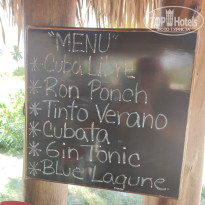 TOP Hotels
"MENU"
*Cuba Libre
*Ron Ponch
*Tinto Verano
*Cubata
*Gin Tonic
*Blue Lagune